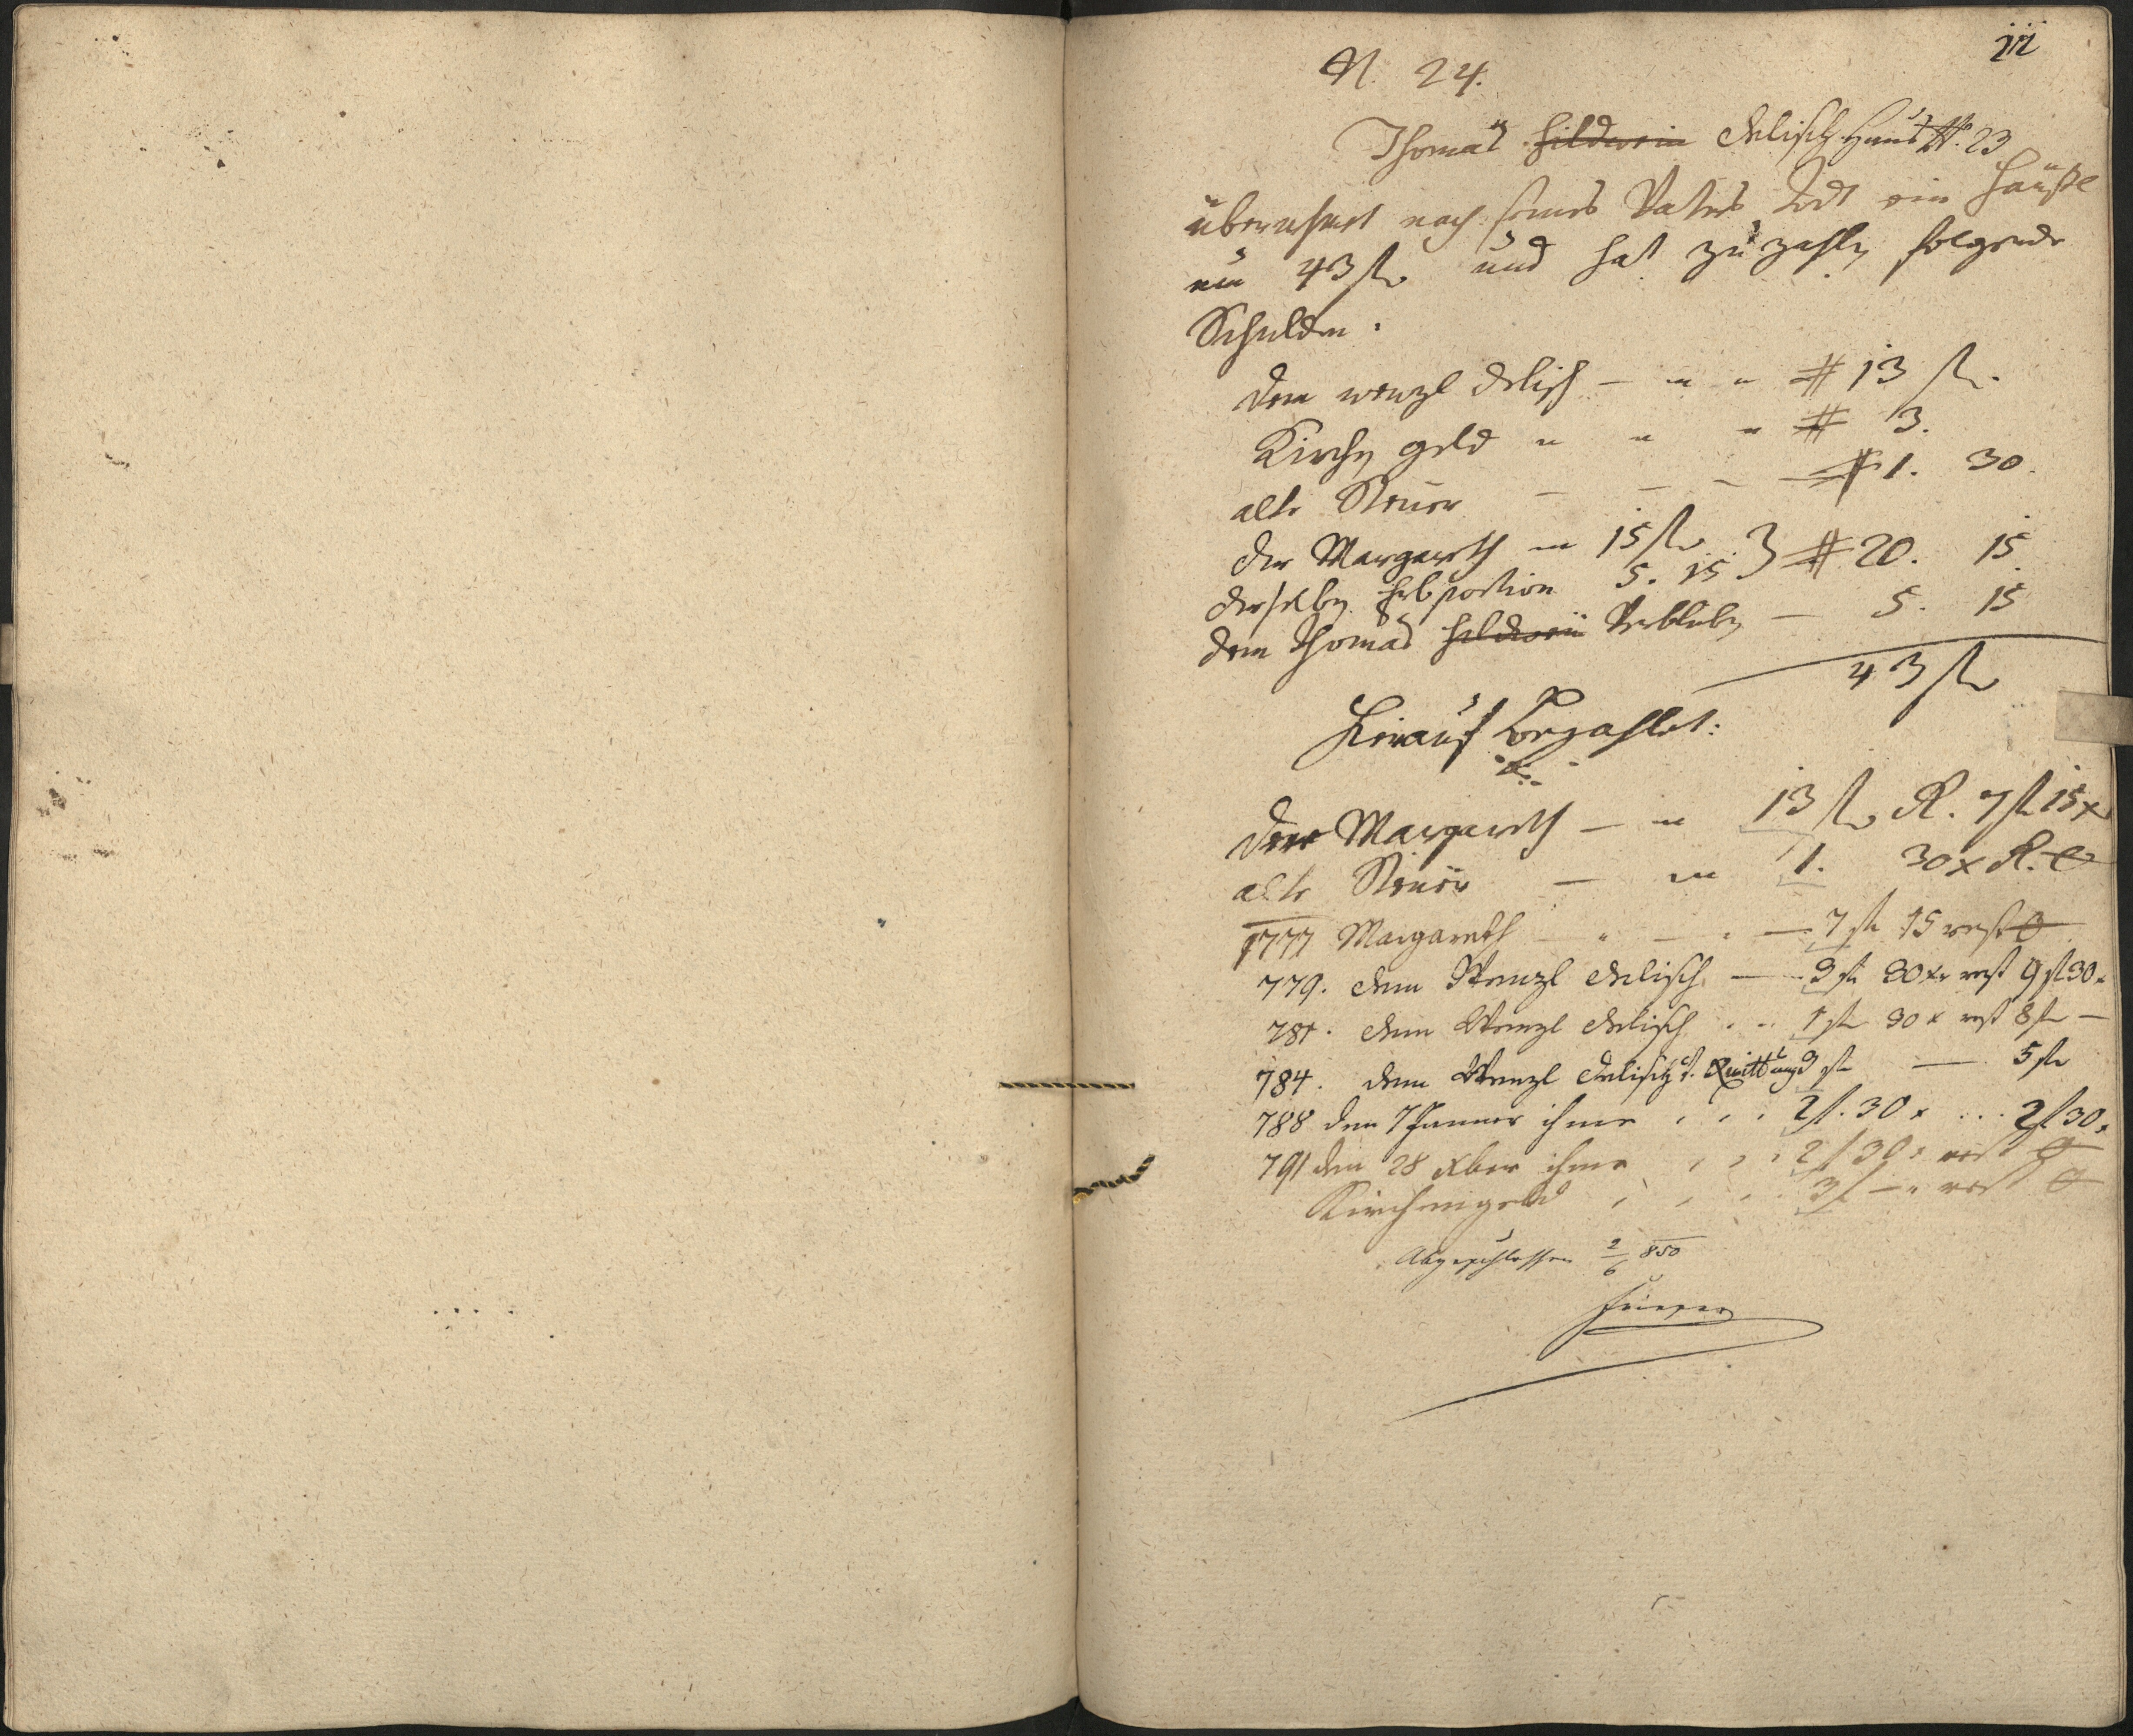 111
N. 24.
Thomas Hildwein Delisch Haus N. 23
übernihmt nach seines Vaters Todt ein Häußl
um 43 fl und hat zu zahlen folgende
Schulden.
Dem Wenzl Delisch — " " # 13 fl.
Kirchen geld " " " # 3.
alte Steuer — — — # 1. 30.
der Margareth — 15 fl
derselben Erbportion 5. 15 } # 20. 15
dem Thomas Hildwein Verbleiben — 5. 15
43 fl
Hierauf bezahlet:
der Margareth — " 13 fl R. 7 fl 15 x
alte Steuer — " 1. 30 x R. 0
1777 Margareth — " — " — 7 fl 15 rest 0
779. dem Wenzl Delisch — 3 fl 30 xr rest 9 fl 30 x
781. dem Wenzl Delisch . . 1 fl 30 x rest 8 fl —
784. dem Wenzl Delisch Quittung 3 fl — 5 fl
788 den 7 Janner ihme , , , 2 f. 30 x . . . 2 f 30 x
791 den 28 Xber ihme , , , 2 f 30 x rest 0
Kirchengeld , , , 3 f — " rest 0
Abgeschlossen 2/6 850